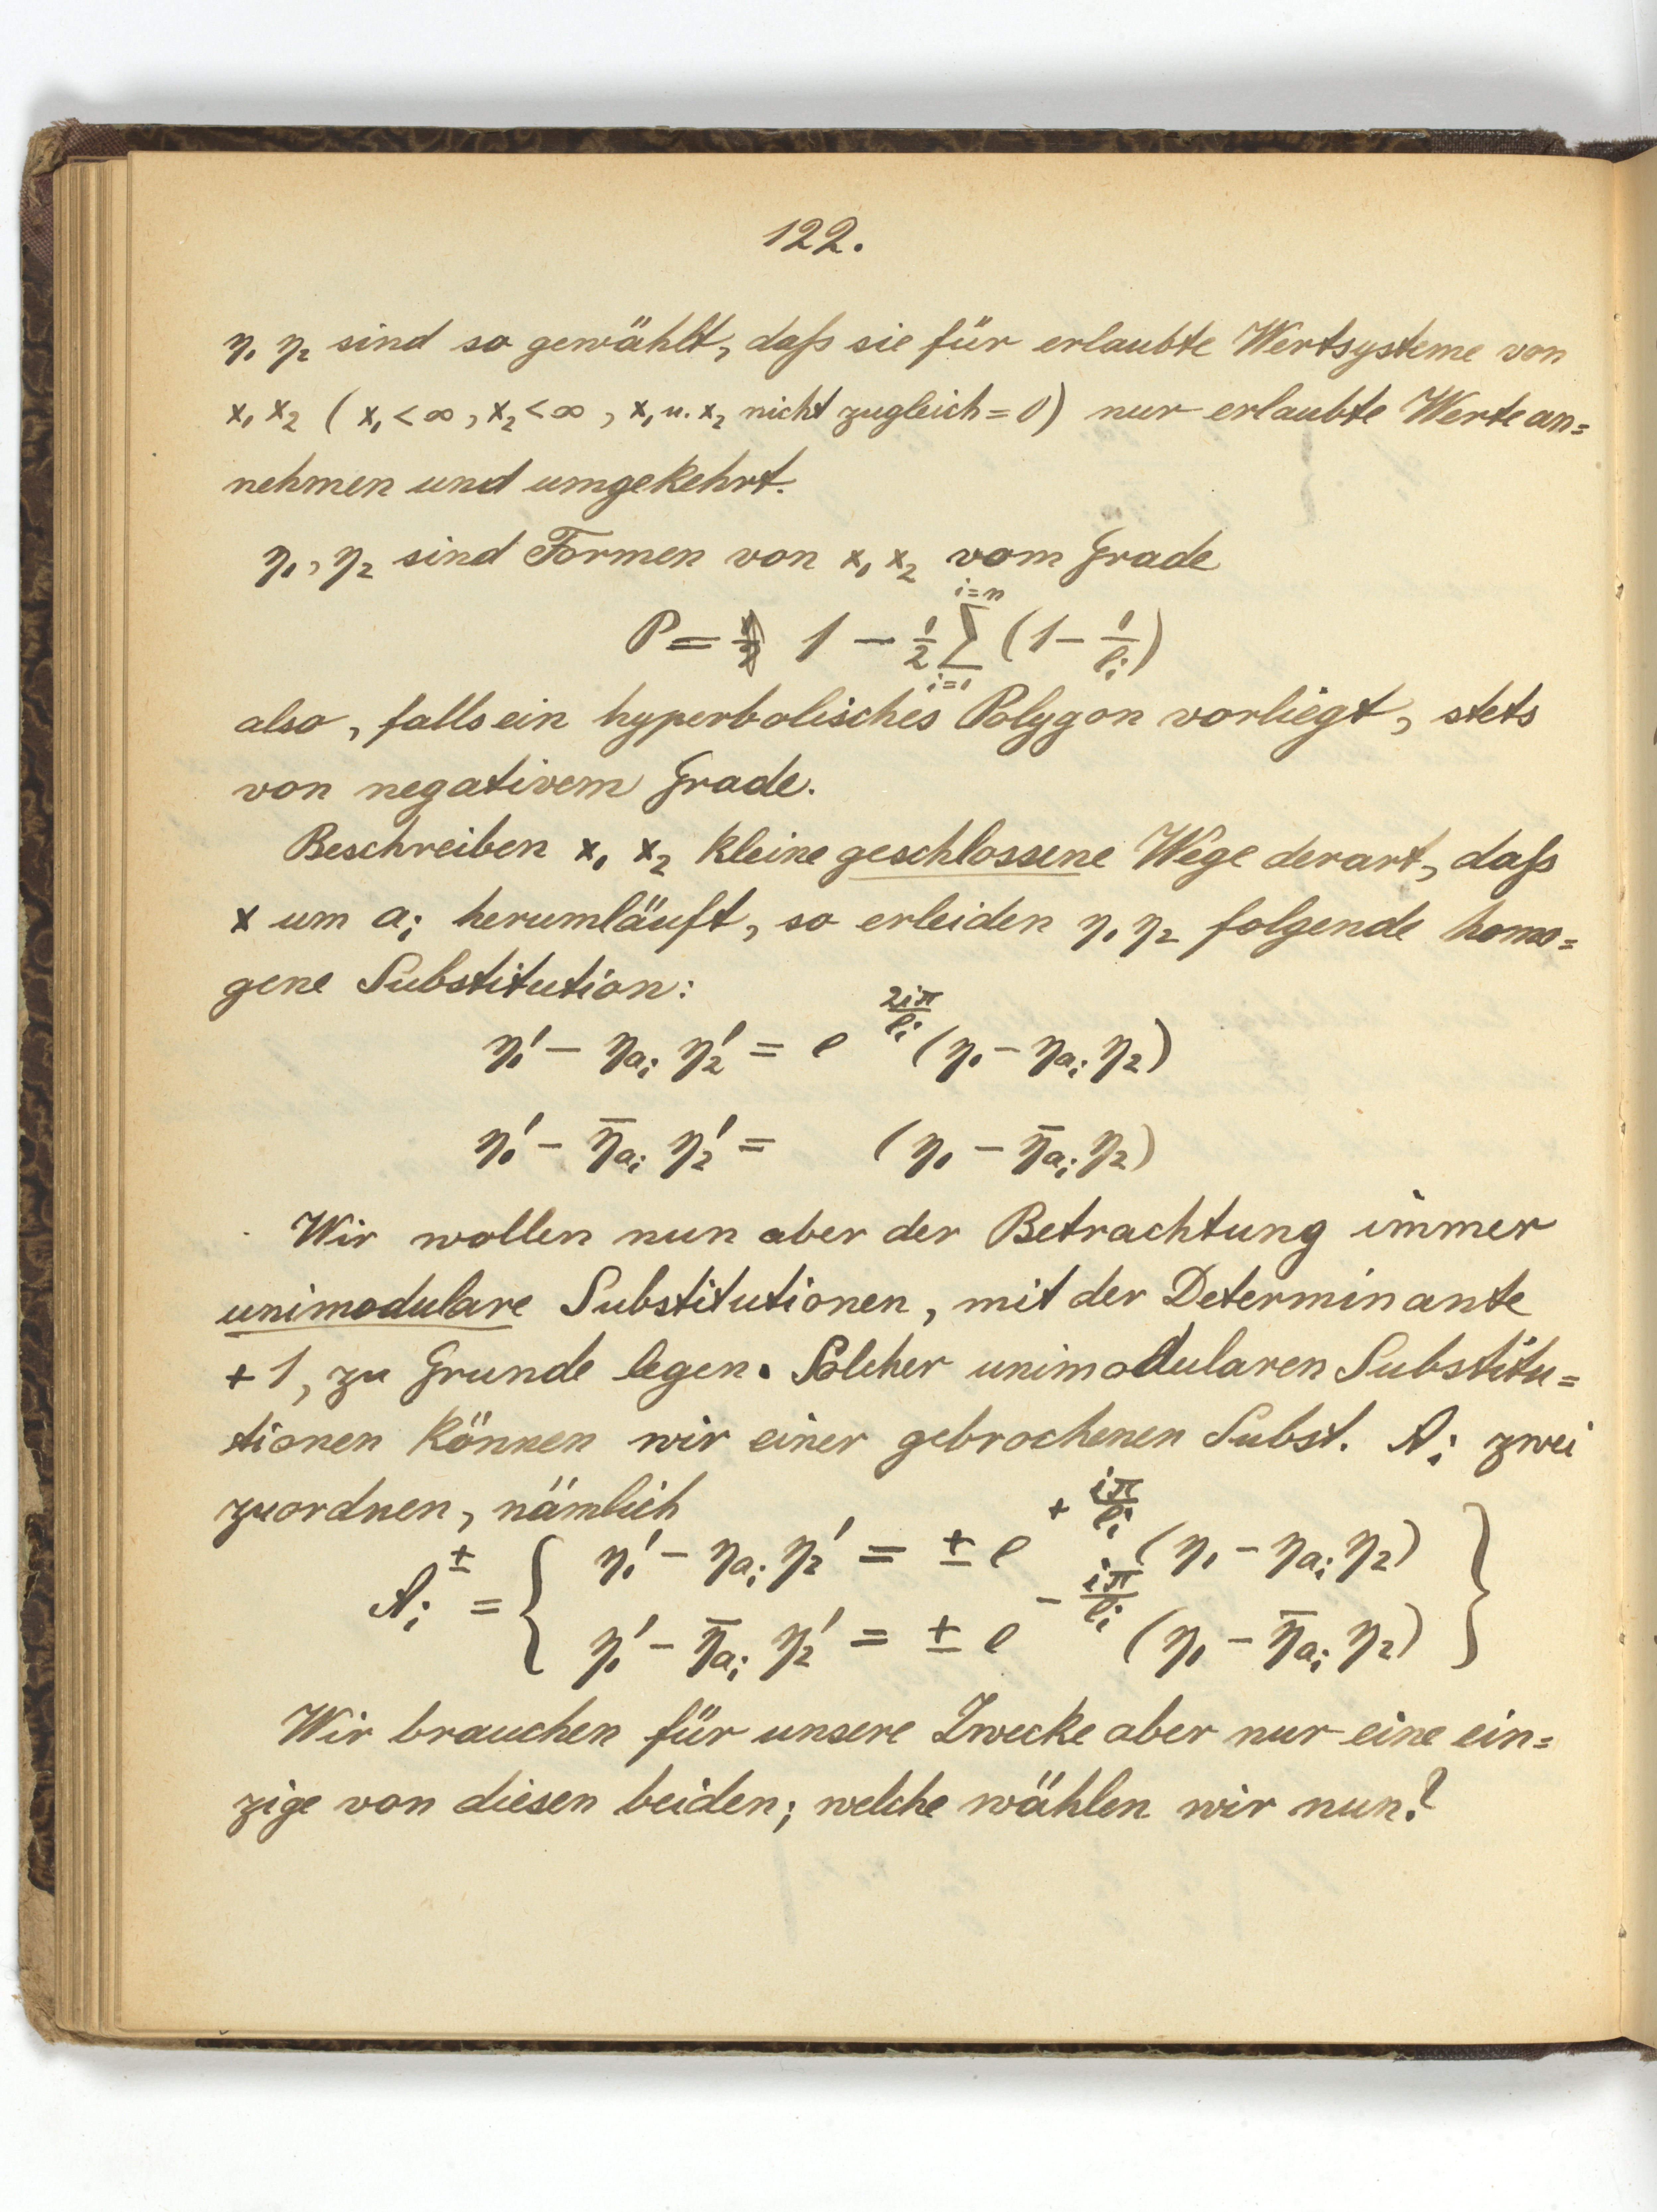 122.
η₁ η₂ sind so gewählt, daß sie für erlaubte Wertsysteme von
x₁ x₂ (x₁ < ∞, x₂ < ∞, x₁ u. x₂ nicht zugleich = 0) nur erlaubte Werte an=
nehmen und umgekehrt.
η₁, η₂ sind Formen von x₁ x₂ vom Grade
P = 1 − 1/2 ∑_{i=1}^{i=n} (1 − 1/ℓᵢ)
also, falls ein hyperbolisches Polygon vorliegt, stets
von negativem Grade.
Beschreiben x₁ x₂ kleine geschlossene Wege derart, daß
x um aᵢ herumläuft, so erleiden η₁ η₂ folgende homo=
gene Substitution:
η₁′ − η_{aᵢ} η₂′ = e^{2iπ/ℓᵢ} (η₁ − η_{aᵢ} η₂)
η₁′ − η̄_{aᵢ} η₂′ = (η₁ − η̄_{aᵢ} η₂)
Wir wollen nun aber der Betrachtung immer
unimodulare Substitutionen, mit der Determinante
+1, zu Grunde legen. Solcher unimodularen Substitu=
tionen können wir einer gebrochenen Subst. Aᵢ zwei
zuordnen, nämlich
Aᵢ^± = { η₁′ − η_{aᵢ} η₂′ = ± e^{+ iπ/ℓᵢ} (η₁ − η_{aᵢ} η₂) }
η₁′ − η̄_{aᵢ} η₂′ = ± e^{− iπ/ℓᵢ} (η₁ − η̄_{aᵢ} η₂)
Wir brauchen für unsere Zwecke aber nur eine ein=
zige von diesen beiden; welche wählen wir nun?